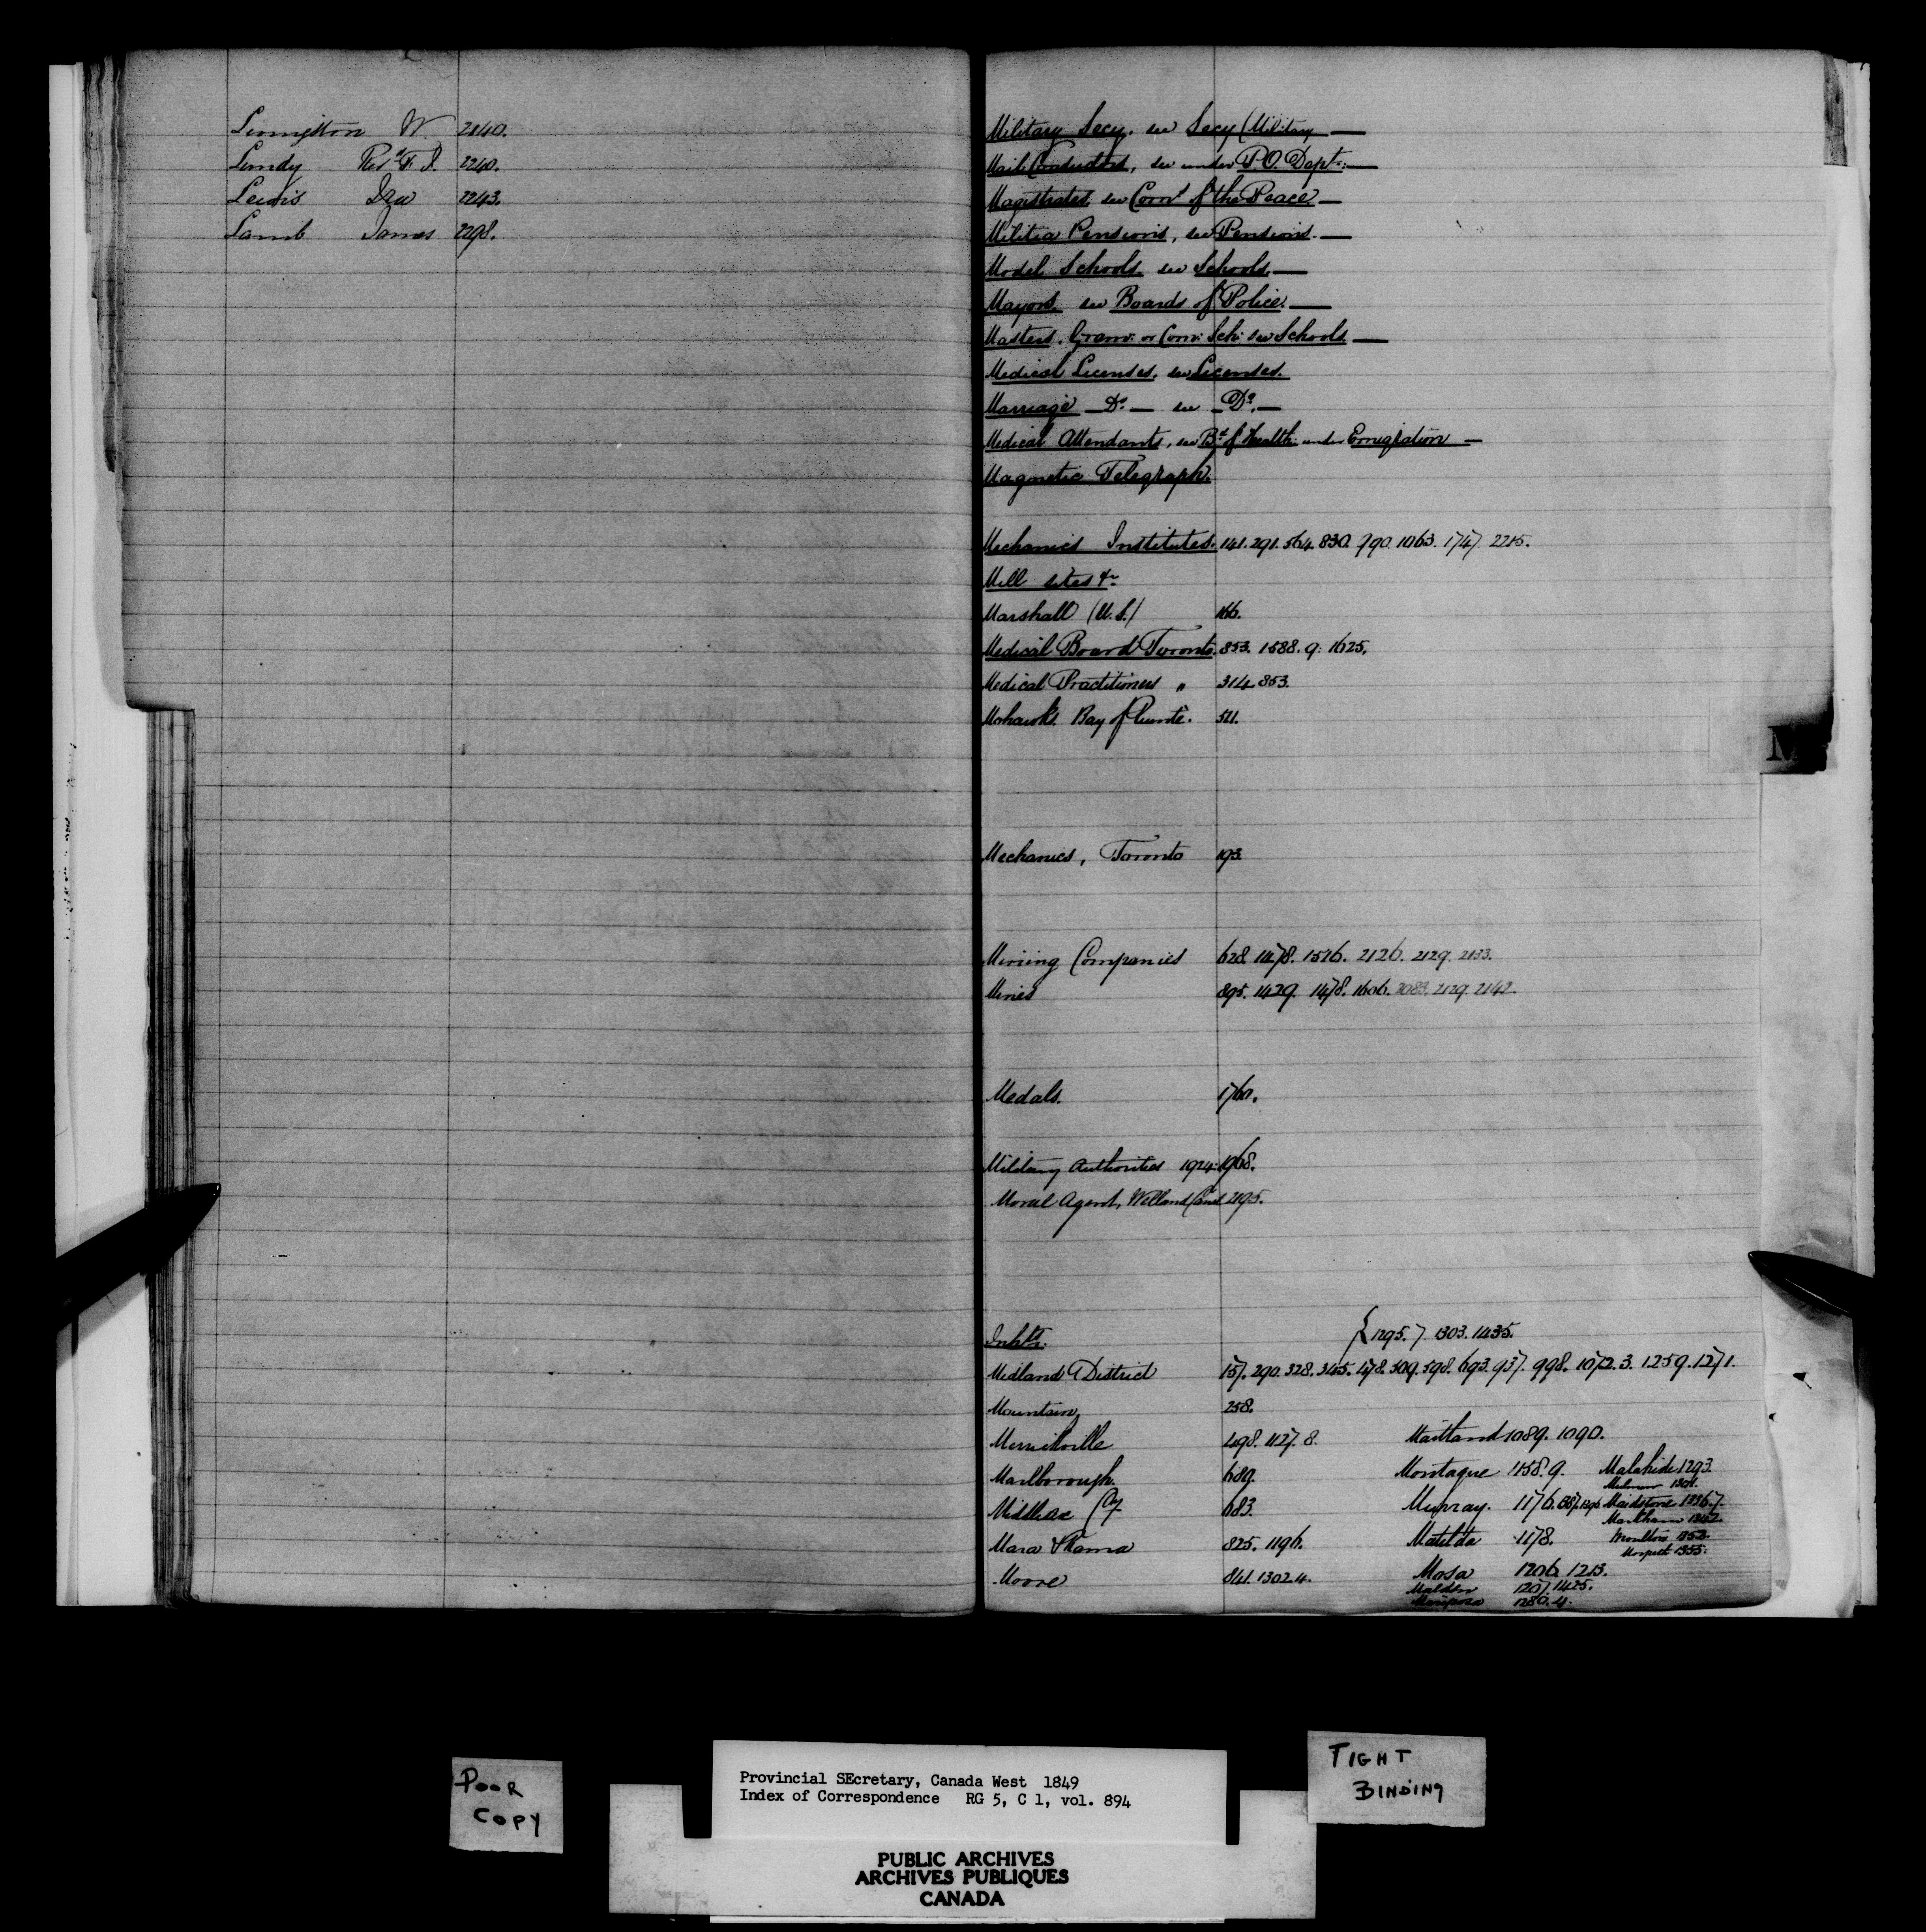 Livingston W. 2140.
Lundy Revd. F. J. 2240.
Lewis Ira 2243.
Lamb James 2298.
Military Secy. see Secy (Military —
Mail Conductors, see under P.O. Dept. —
Magistrates see Comn of the Peace —
Militia Pensions, see Pensions. —
Model Schools. see Schools —
Mayors. see Boards of Police. —
Masters. Gram: or Com: Sch: see Schools —
Medical Licenses. see Licenses.
Marriage — Do. — see — Do. —
Medical Attendants, see Bd. of Health under Emigration —
Magnetic Telegraph.
Mechanics Institutes. 141. 291. 564. 830. 990. 1063. 1747. 2215.
Mill sites &c
Marshall (U.S.) 166.
Medical Board Toronto. 853. 1588. 9. 1625.
Medical Practitioners " 314. 853.
Mohawks. Bay of Quinté. 521.
M
Mechanics, Toronto 193.
Mining Companies 628. 1478. 1526. 2126. 2129. 2133.
Mines 895. 1429. 1478. 1606. 2083. 2129. 2142.
Medals. 1760.
Military Authorities 1924. 1968.
Moral Agent, Welland Canal 2195.
Inhts. { 1295. 7 1303. 1435.
Midland District 157. 290. 328. 345. 478. 509. 598. 693. 937. 998. 1072. 3. 1259. 1271.
Mountain 258.
Merrittville 498. 1127. 8. Maitland 1089. 1090.
Marlborough. 689. Montague 1158. 9. Malahide 1293.
Middlesex Cy 683. Murray. 1176. Maidstone 1336.7.
Markham
Mara & Rama 825. 1196. Matilda 1178. Moulton 1353.
Morpeth 1355.
Moore 841. 1302. 4. Mosa 1206. 1213.
Malden 1207. 1425.
Mariposa 1280. 4.
POOR
COPY
Provincial SEcretary, Canada West 1849
Index of Correspondence RG 5, C 1, vol. 894
TIGHT
BINDING
PUBLIC ARCHIVES
ARCHIVES PUBLIQUES
CANADA